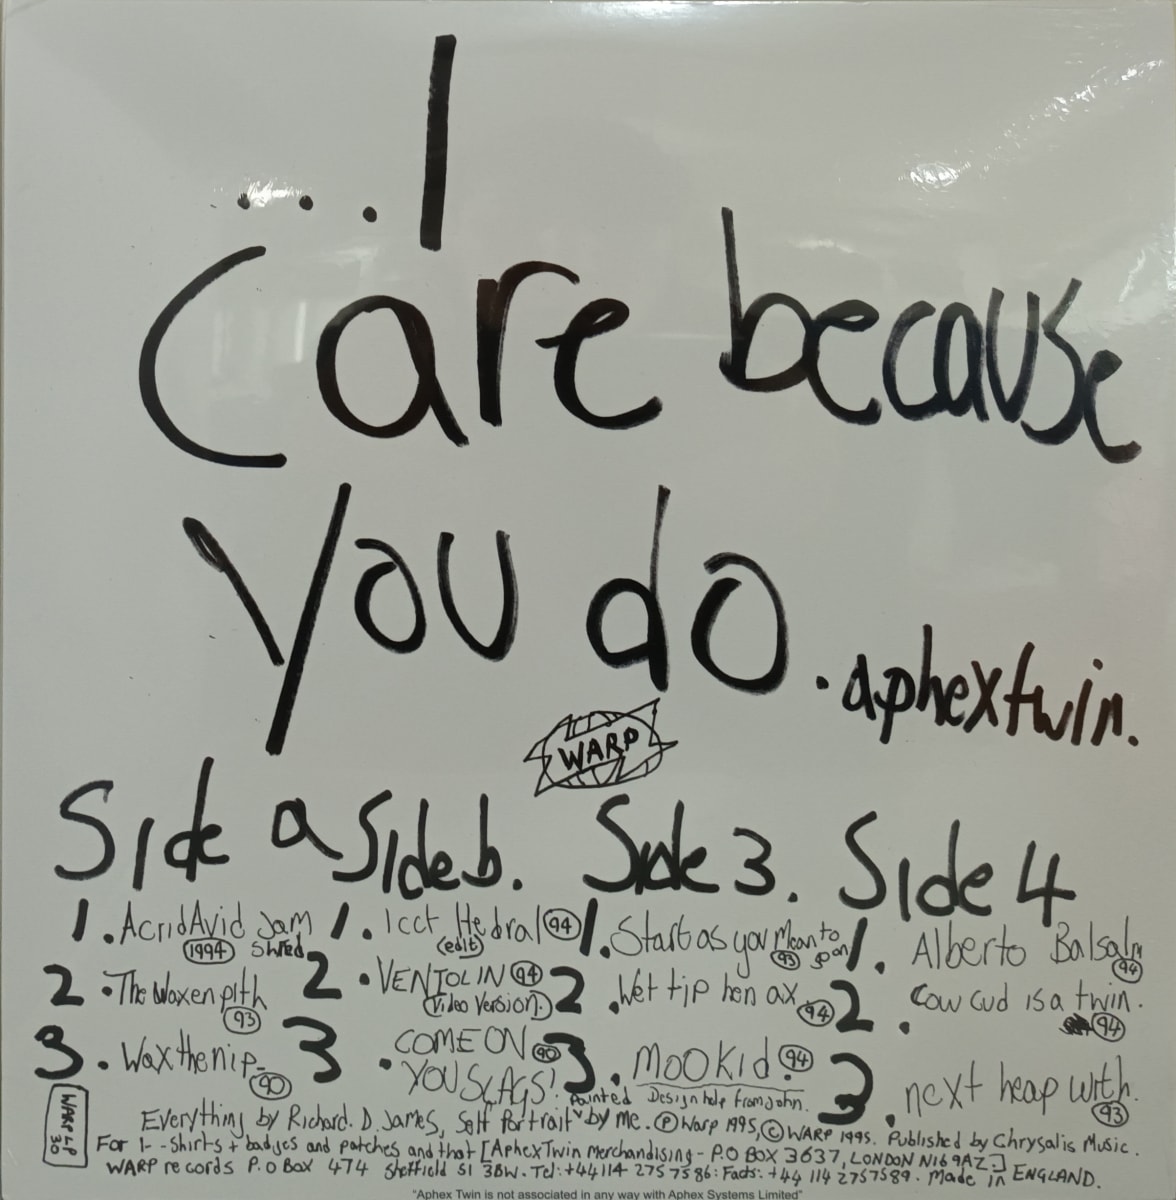 ...I
Care because
You do. aphextwin.
WARP
Side a
1. Acrid Avid Jam
1994 Shred
2. The Waxen pith
93
3. Wax the nip
90
Side b.
1. Icct Hedral 94
(edit)
2. VENTOLIN 94
(Video Version.)
3. COME ON 90
YOU SLAGS!
Side 3.
1. Start as you Mean to
93 go on
2. Wet tip hen ax
94
3. MOOKid. 94
Side 4
1. Alberto Balsalm
94
2. Cow cud is a twin.
94
3. next heap with.
93
painted Design help from john.
Everything by Richard. D. James, Self Portrait ˅ by me. Ⓟ Warp 1995, © WARP 1995. Published by Chrysalis Music.
For T-Shirts + badges and patches and that [Aphex Twin Merchandising - P.O BOX 3637, LONDON N16 9AZ]
WARP records P.O Box 474 Sheffield S1 3BW. Tel: +44 114 2757586: Facts: +44 114 2757589. Made in ENGLAND.
WARP LP
30
"Aphex Twin is not associated in any way with Aphex Systems Limited"